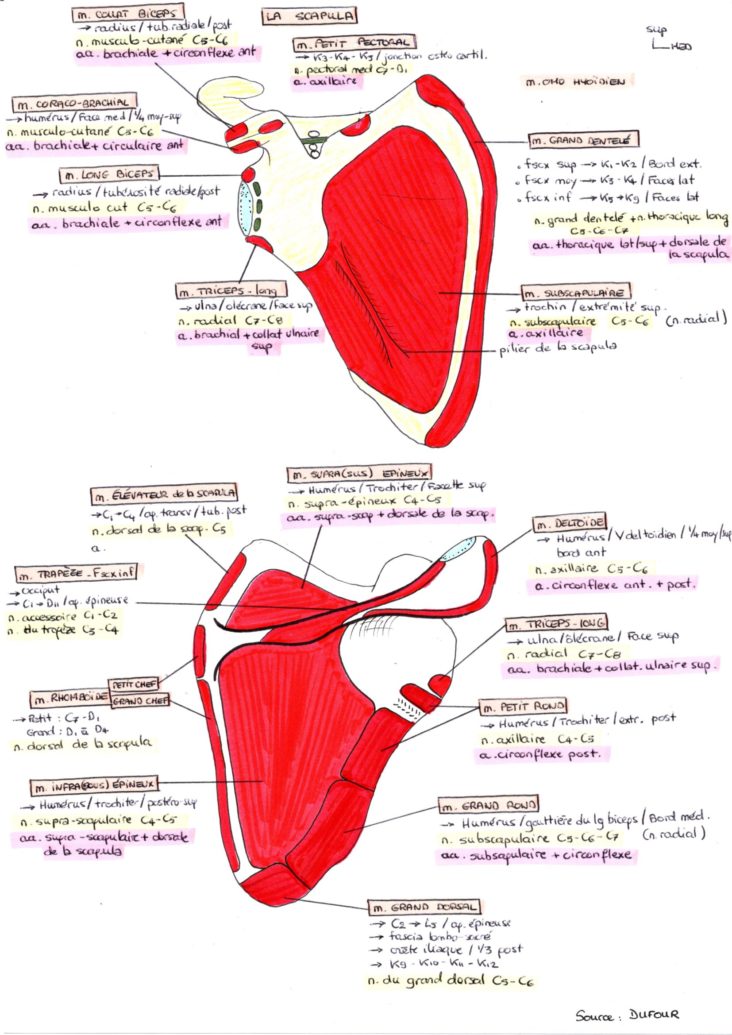 m. COURT BICEPS
→ radius/tub.radiale/post
n. musculo-cutané C5-C6
aa. brachiale + circonflexe ant
LA SCAPULA
m. PETIT PECTORAL
→ K3-K4-K5/jonction
n. pectoral med C7-D1
a. axillaire
SUP
MED
m. OMO HYOÏDIEN
m. CORACO-BRACHIAL
→ humérus/Face med/¼ moy-sup
n. musculo-cutané C5-C6
aa. brachiale + circulaire ant
m. LONG BICEPS
→ radius/tubérosité radiale/post
n. musculo cut C5-C6
aa. brachiale + circonflexe ant
m. GRAND DENTELÉ
• fscx sup → K1-K2 / Bord ext.
• fscx moy → K3-K4 / Faces lat
• fscx inf → K5→K9 / Faces lat
n. grand dentelé + n. thoracique long
C5-C6-C7
aa. thoracique lat/sup + dorsale de
la scapula
m. TRICEPS-long
→ ulna/olécrane/face sup
n. radial C7-C8
a. brachial + collat ulnaire
sup
m. SUBSCAPULAIRE
→ trochin/extrémité sup.
n. subscapulaire C5-C6 (n. radial)
a. axillaire
pilier de la scapula
m. SUPRA(SUS) EPINEUX
→ Humérus/Trochiter/Facette sup
n. supra-épineux C4-C5
aa. supra-scap + dorsale de la scap.
m. ÉLÉVATEUR de la SCAPULA
→ C1→C4/ap. transv/tub. post
n. dorsal de la scap. C5
a.
m. DELTOÏDE
→ Humérus/V deltoïdien/¼ moy/sup
bord ant
n. axillaire C5-C6
a. circonflexe ant. + post.
m. TRAPÈZE - Fscx inf
→ occiput
→ C1→D11/ap. épineuse
n. accessoire C1-C2
n. du trapèze C3-C4
m. TRICEPS-LONG
→ ulna/Olécrane/Face sup
n. radial C7-C8
aa. brachiale + collat. ulnaire sup.
m. RHOMBOÏDE PETIT CHEF
GRAND CHEF
→ Petit : C7-D1
Grand : D1 à D4
n. dorsal de la scapula
m. PETIT ROND
→ Humérus/Trochiter/extr. post
n. axillaire C4-C5
a. circonflexe post.
m. INFRA(SOUS) ÉPINEUX
→ Humérus/trochiter/postéro-sup
n. supra-scapulaire C4-C5
aa. supra-scapulaire + dorsale
de la scapula
m. GRAND ROND
→ Humérus/gouttière du lg biceps/Bord méd.
n. subscapulaire C5-C6-C7 (n. radial)
aa. subsapulaire + circonflexe
m. GRAND DORSAL
→ C2→L5/ap. épineuse
→ fascia lombo-sacré
→ crête iliaque/1/3 post
→ K9-K10-K11-K12
n. du grand dorsal C5-C6
Source : DUFOUR